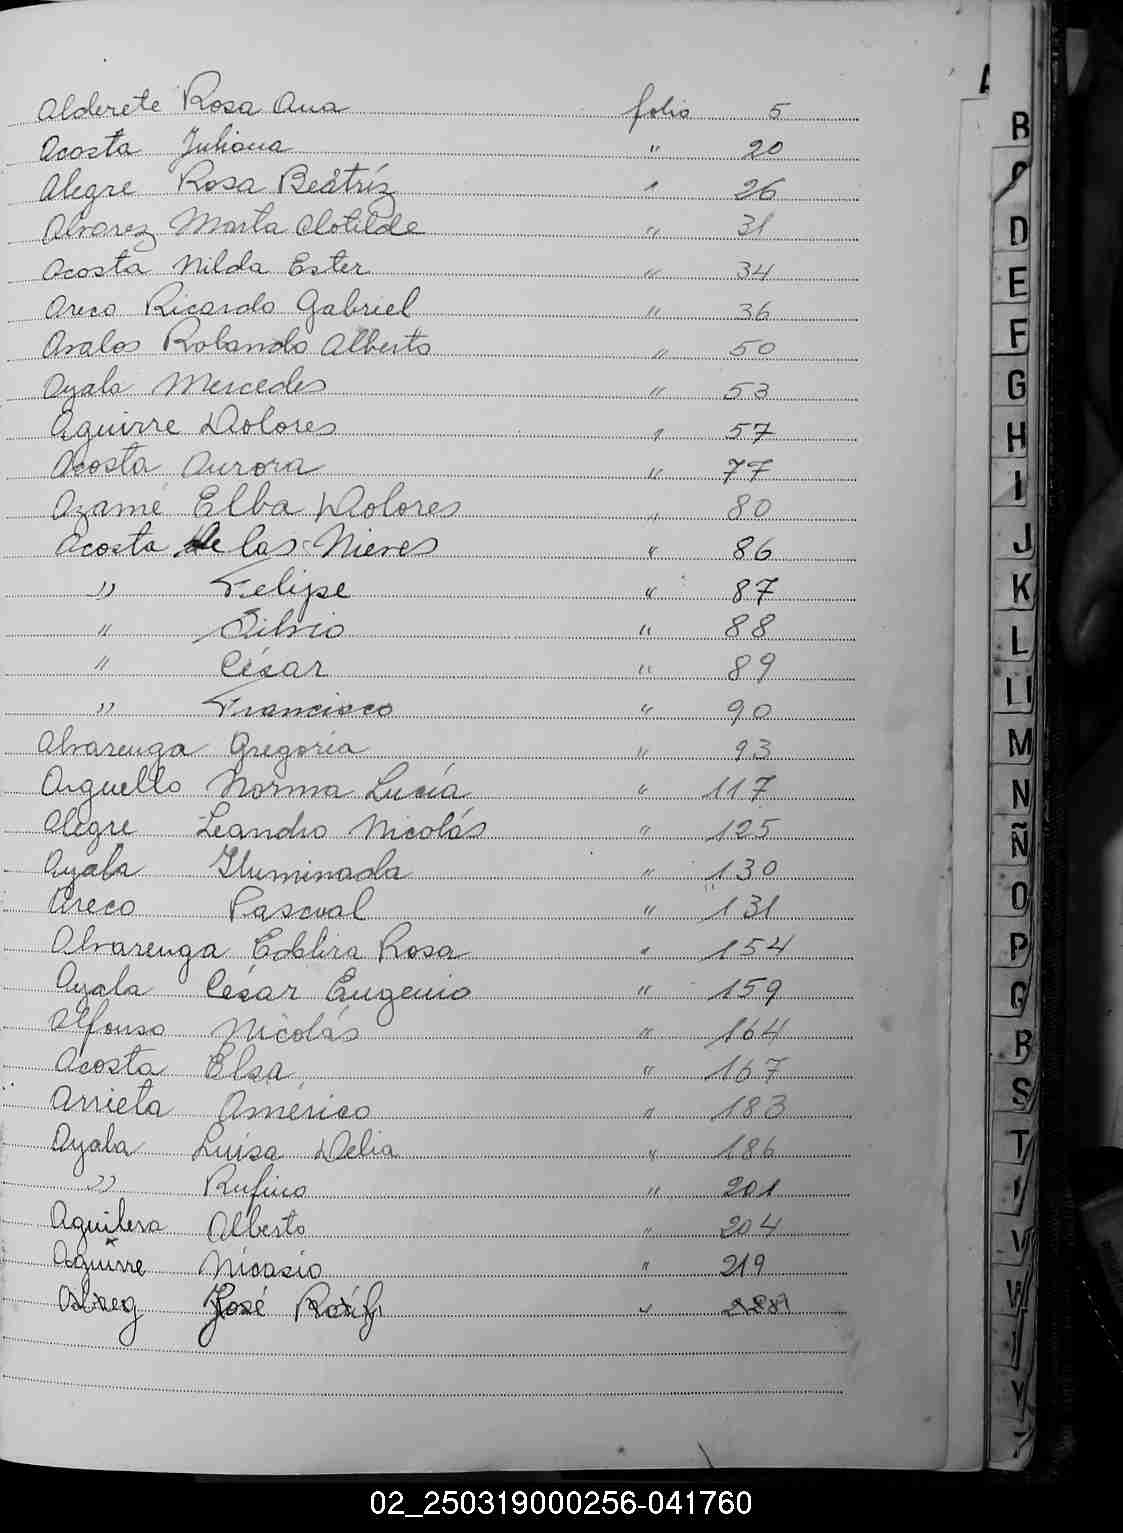 A
Alderete Rosa Ana folio 5
Acosta Juliana " 20
Alegre Rosa Beatríz " 26
Alvarez Marta Clotilde " 31
Acosta Nilda Ester " 34
Areco Ricardo Gabriel " 36
Avalos Rolando Alberto " 50
Ayala Mercedes " 53
Aguirre Dolores " 57
Acosta Aurora " 77
Azamé Elba Dolores " 80
Acosta de las Nieves " 86
" Felipe " 87
" Silvio " 88
" César " 89
" Francisco " 90
Alvarenga Gregoria " 93
Arguello Norma Lucía " 117
Alegre Leandro Nicolás " 125
Ayala Iluminada " 130
Areco Pascual " 131
Alvarenga Rosa " 154
Ayala César Eugenio " 159
Alfonso Nicolás " 164
Acosta Elsa " 167
Arrieta Américo " 183
Ayala Luisa Delia " 186
" Rufino " 201
Aguilera Alberto " 204
Aguirre Nicasio " 219
José "
B
C
D
E
F
G
H
I
J
K
L
Ll
M
N
Ñ
O
P
Q
R
S
T
V
W
Y
02_250319000256-041760